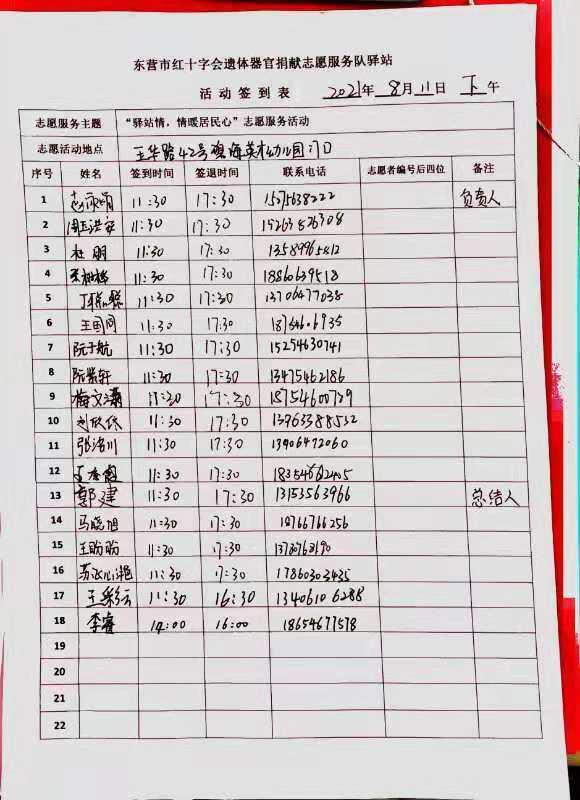 东营市红十字会遗体器官捐献志愿服务队驿站
活动签到表 2021年8月11日 下午
志愿服务主题 “驿站情，情暖居民心”志愿服务活动
志愿活动地点 42号 幼儿园门口
序号 姓名 签到时间 签退时间 联系电话 志愿者编号后四位 备注
1 11:30 17:30 15275638222 负责人
2 11:30 17:30
3 杜明 11:30 17:30 13589965412
4 11:30 17:30 18860639518
5 11:30 17:30 13706477038
6 王国同 11:30 17:30
7 阮子航 11:30 17:30 15254630741
8 阮紫轩 11:30 17:30 13475462186
9 梅文潇 17:30 17:30 18754600729
10 刘欣依 11:30 17:30 13963388532
11 张洛川 11:30 17:30 13906472060
12 11:30 17:30
13 郭建 11:30 17:30 13153563966 总结人
14 马晓旭 11:30 17:30 18766766256
15 王盼盼 11:30 17:30
16 11:30 17:30 17860303435
17 王彩云 11:30 16:30 13406106288
18 李睿 14:00 16:00 18654677578
19
20
21
22